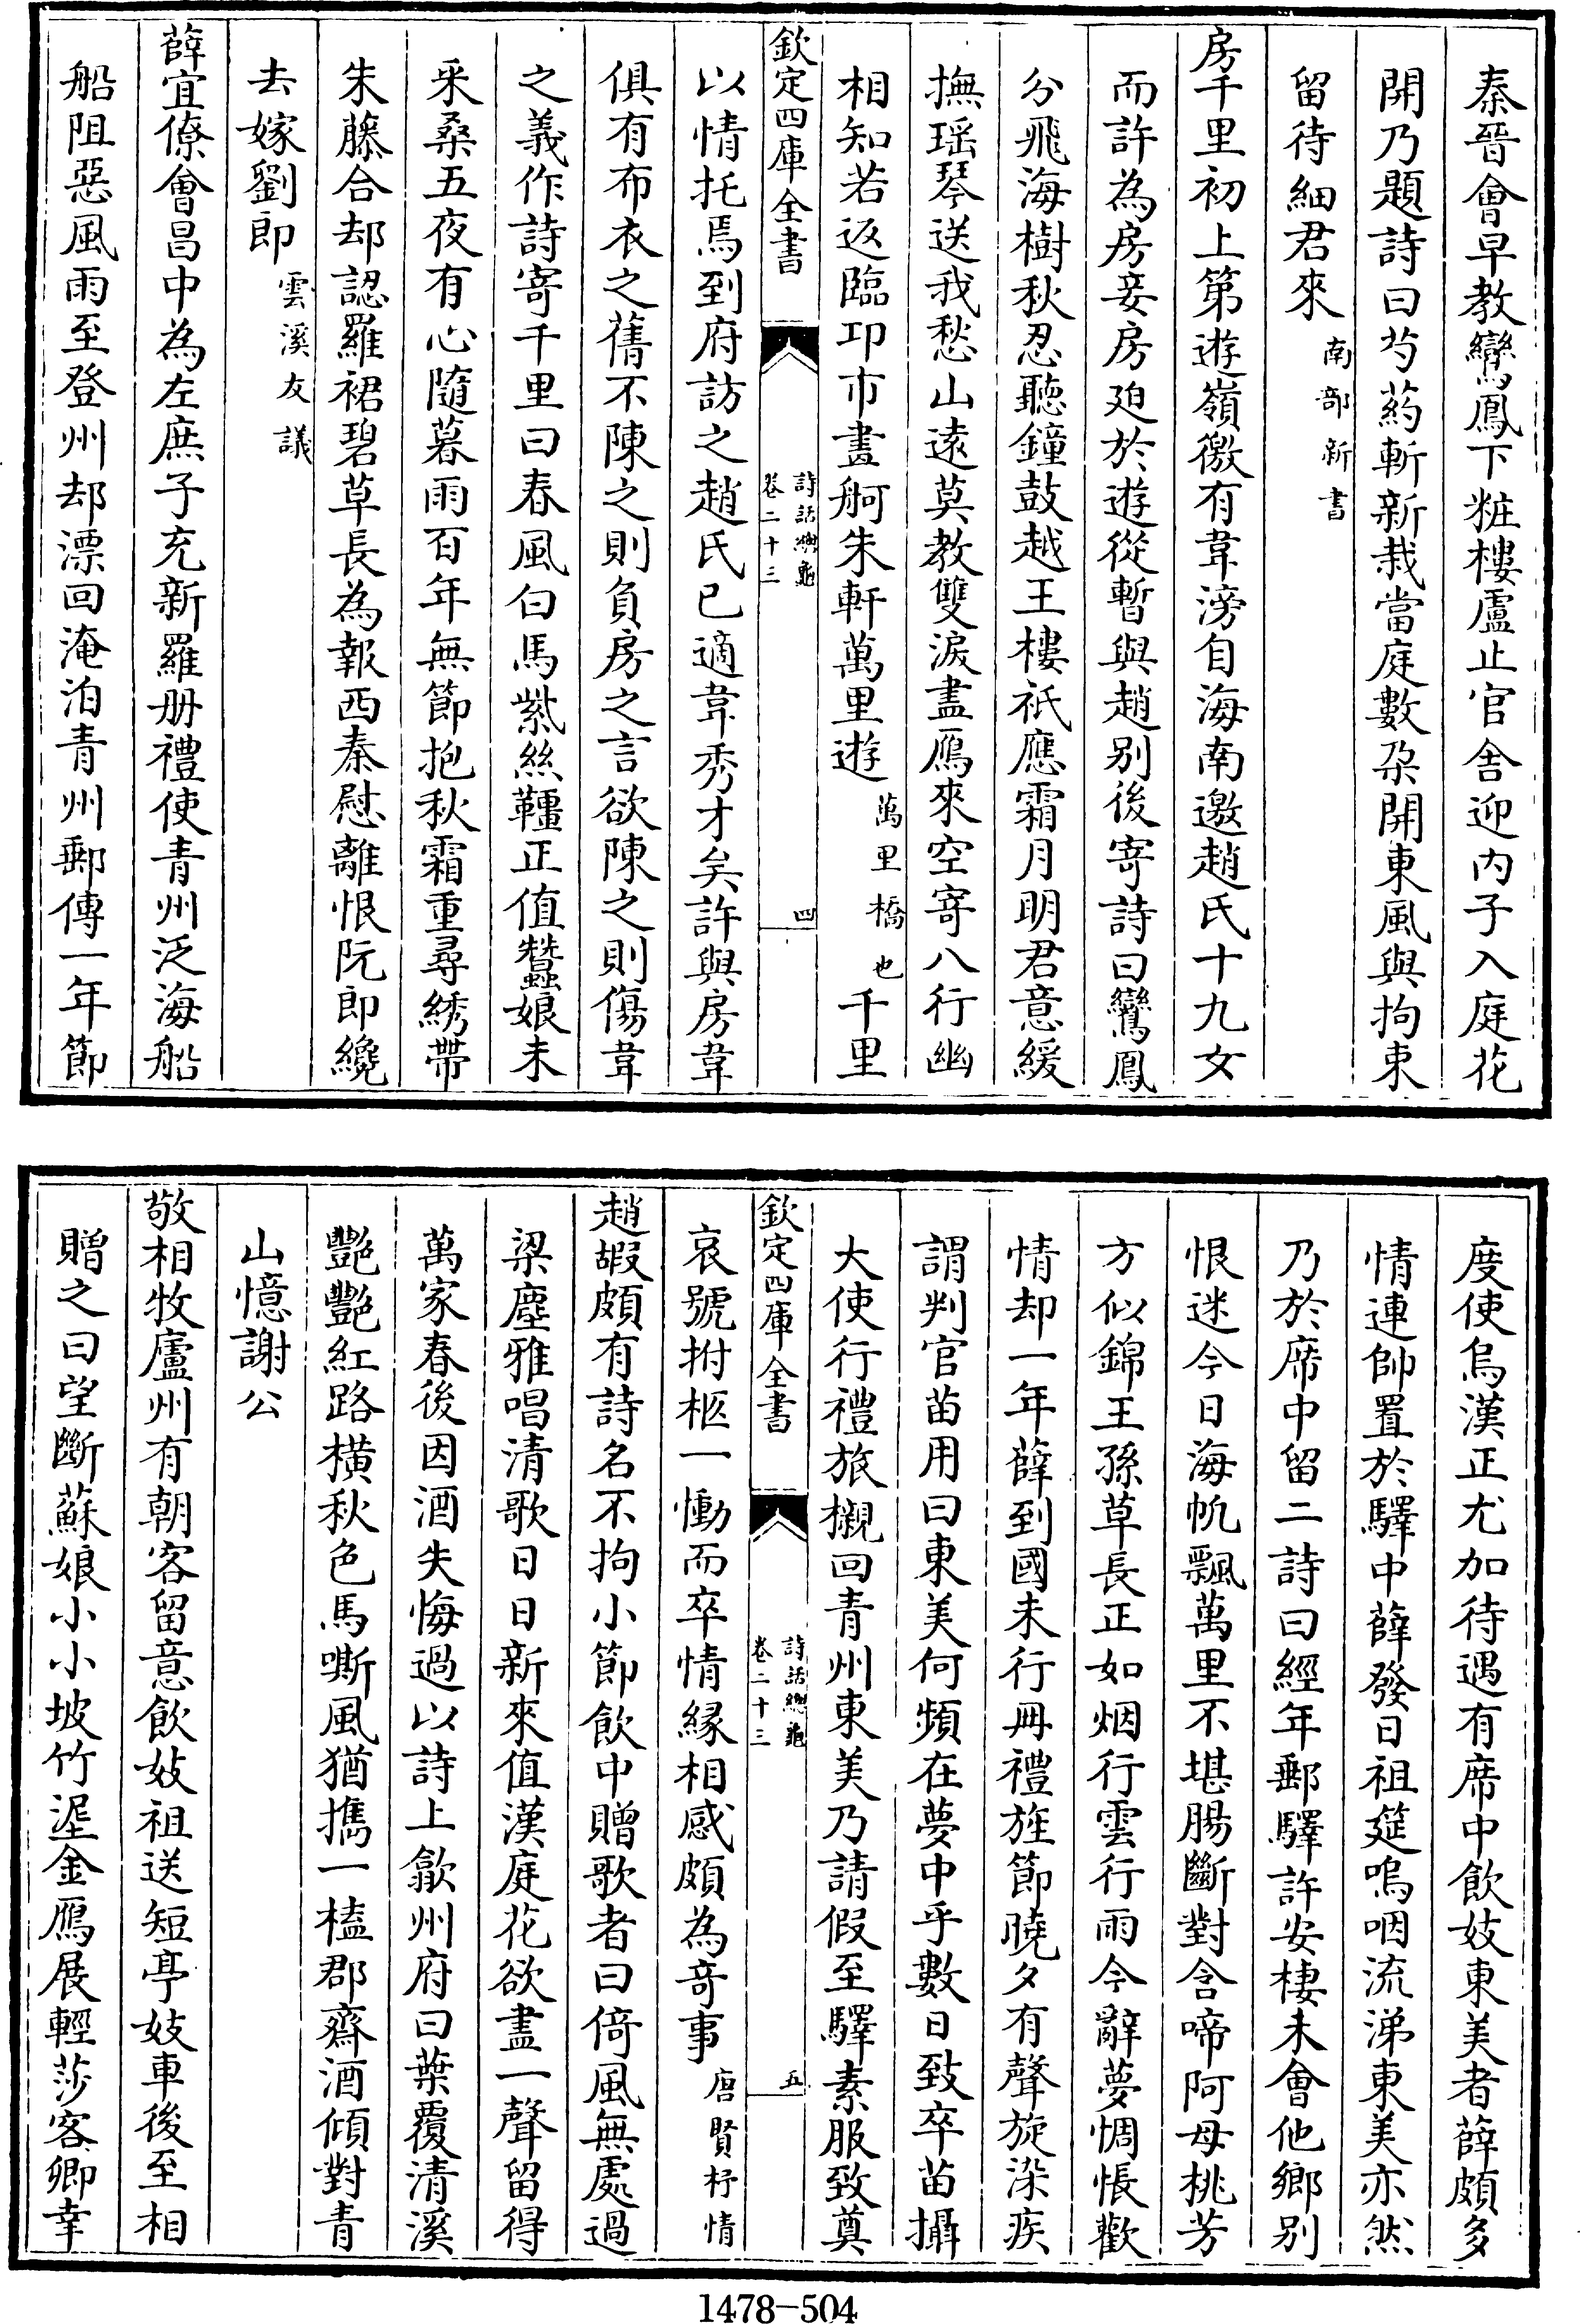 秦晉會早教鸞鳳下粧樓盧止官舍迎內子入庭花
開乃題詩曰芍藥斬新栽當庭數朶開東風與拘束
留待細君來南部新書
房千里初上第遊嶺徼有韋滂自海南邀趙氏十九女
而許為房妾房廹於遊從暫與趙别後寄詩曰鸞鳳
分飛海樹秋忍聽鐘鼓越王樓祇應霜月明君意緩
撫瑶琴送我愁山遠莫教雙淚盡鴈來空寄八行幽
相知若返臨卭市畫舸朱軒萬里遊萬里橋也千里
欽定四庫全書
詩話總龜
卷二十三
四
以情托焉到府訪之趙氏已適韋秀才矣許與房韋
俱有布衣之舊不陳之則負房之言欲陳之則傷韋
之義作詩寄千里曰春風白馬紫絲韁正值蠶娘未
采桑五夜有心隨暮雨百年無節抱秋霜重尋綉帶
朱藤合却認羅裙碧草長為報西秦慰離恨阮郎纔
去嫁劉郎雲溪友議
薛宜僚會昌中為左庶子充新羅册禮使青州泛海船
船阻惡風雨至登州却漂回淹泊青州郵傳一年節
度使烏漢正尤加待遇有席中飲妓東美者薛頗多
情連帥置於驛中薛發日祖筵嗚咽流涕東美亦然
乃於席中留二詩曰經年郵驛許安棲未會他鄉别
恨迷今日海帆飄萬里不堪腸斷對含啼阿母桃芳
方似錦王孫草長正如烟行雲行雨今辭夢惆悵歡
情却一年薛到國未行冊禮旌節曉夕有聲旋染疾
謂判官苗用曰東美何頻在夢中乎數日致卒苗攝
大使行禮旅櫬回青州東美乃請假至驛素服致奠
欽定四庫全書
詩話總龜
卷二十三
五
哀號拊柩一慟而卒情緣相感頗為竒事唐賢抒情
趙嘏頗有詩名不拘小節飲中贈歌者曰倚風無處過
梁塵雅唱清歌日日新來值漢庭花欲盡一聲留得
萬家春後因酒失悔過以詩上歙州府曰葉覆清溪
艷艷紅路橫秋色馬嘶風猶擕一榼郡齋酒傾對青
山憶謝公
敬相牧廬州有朝客留意飲妓祖送短亭妓車後至相
贈之曰望斷蘇娘小小坡竹遅金鴈展輕莎客卿幸
1478-504